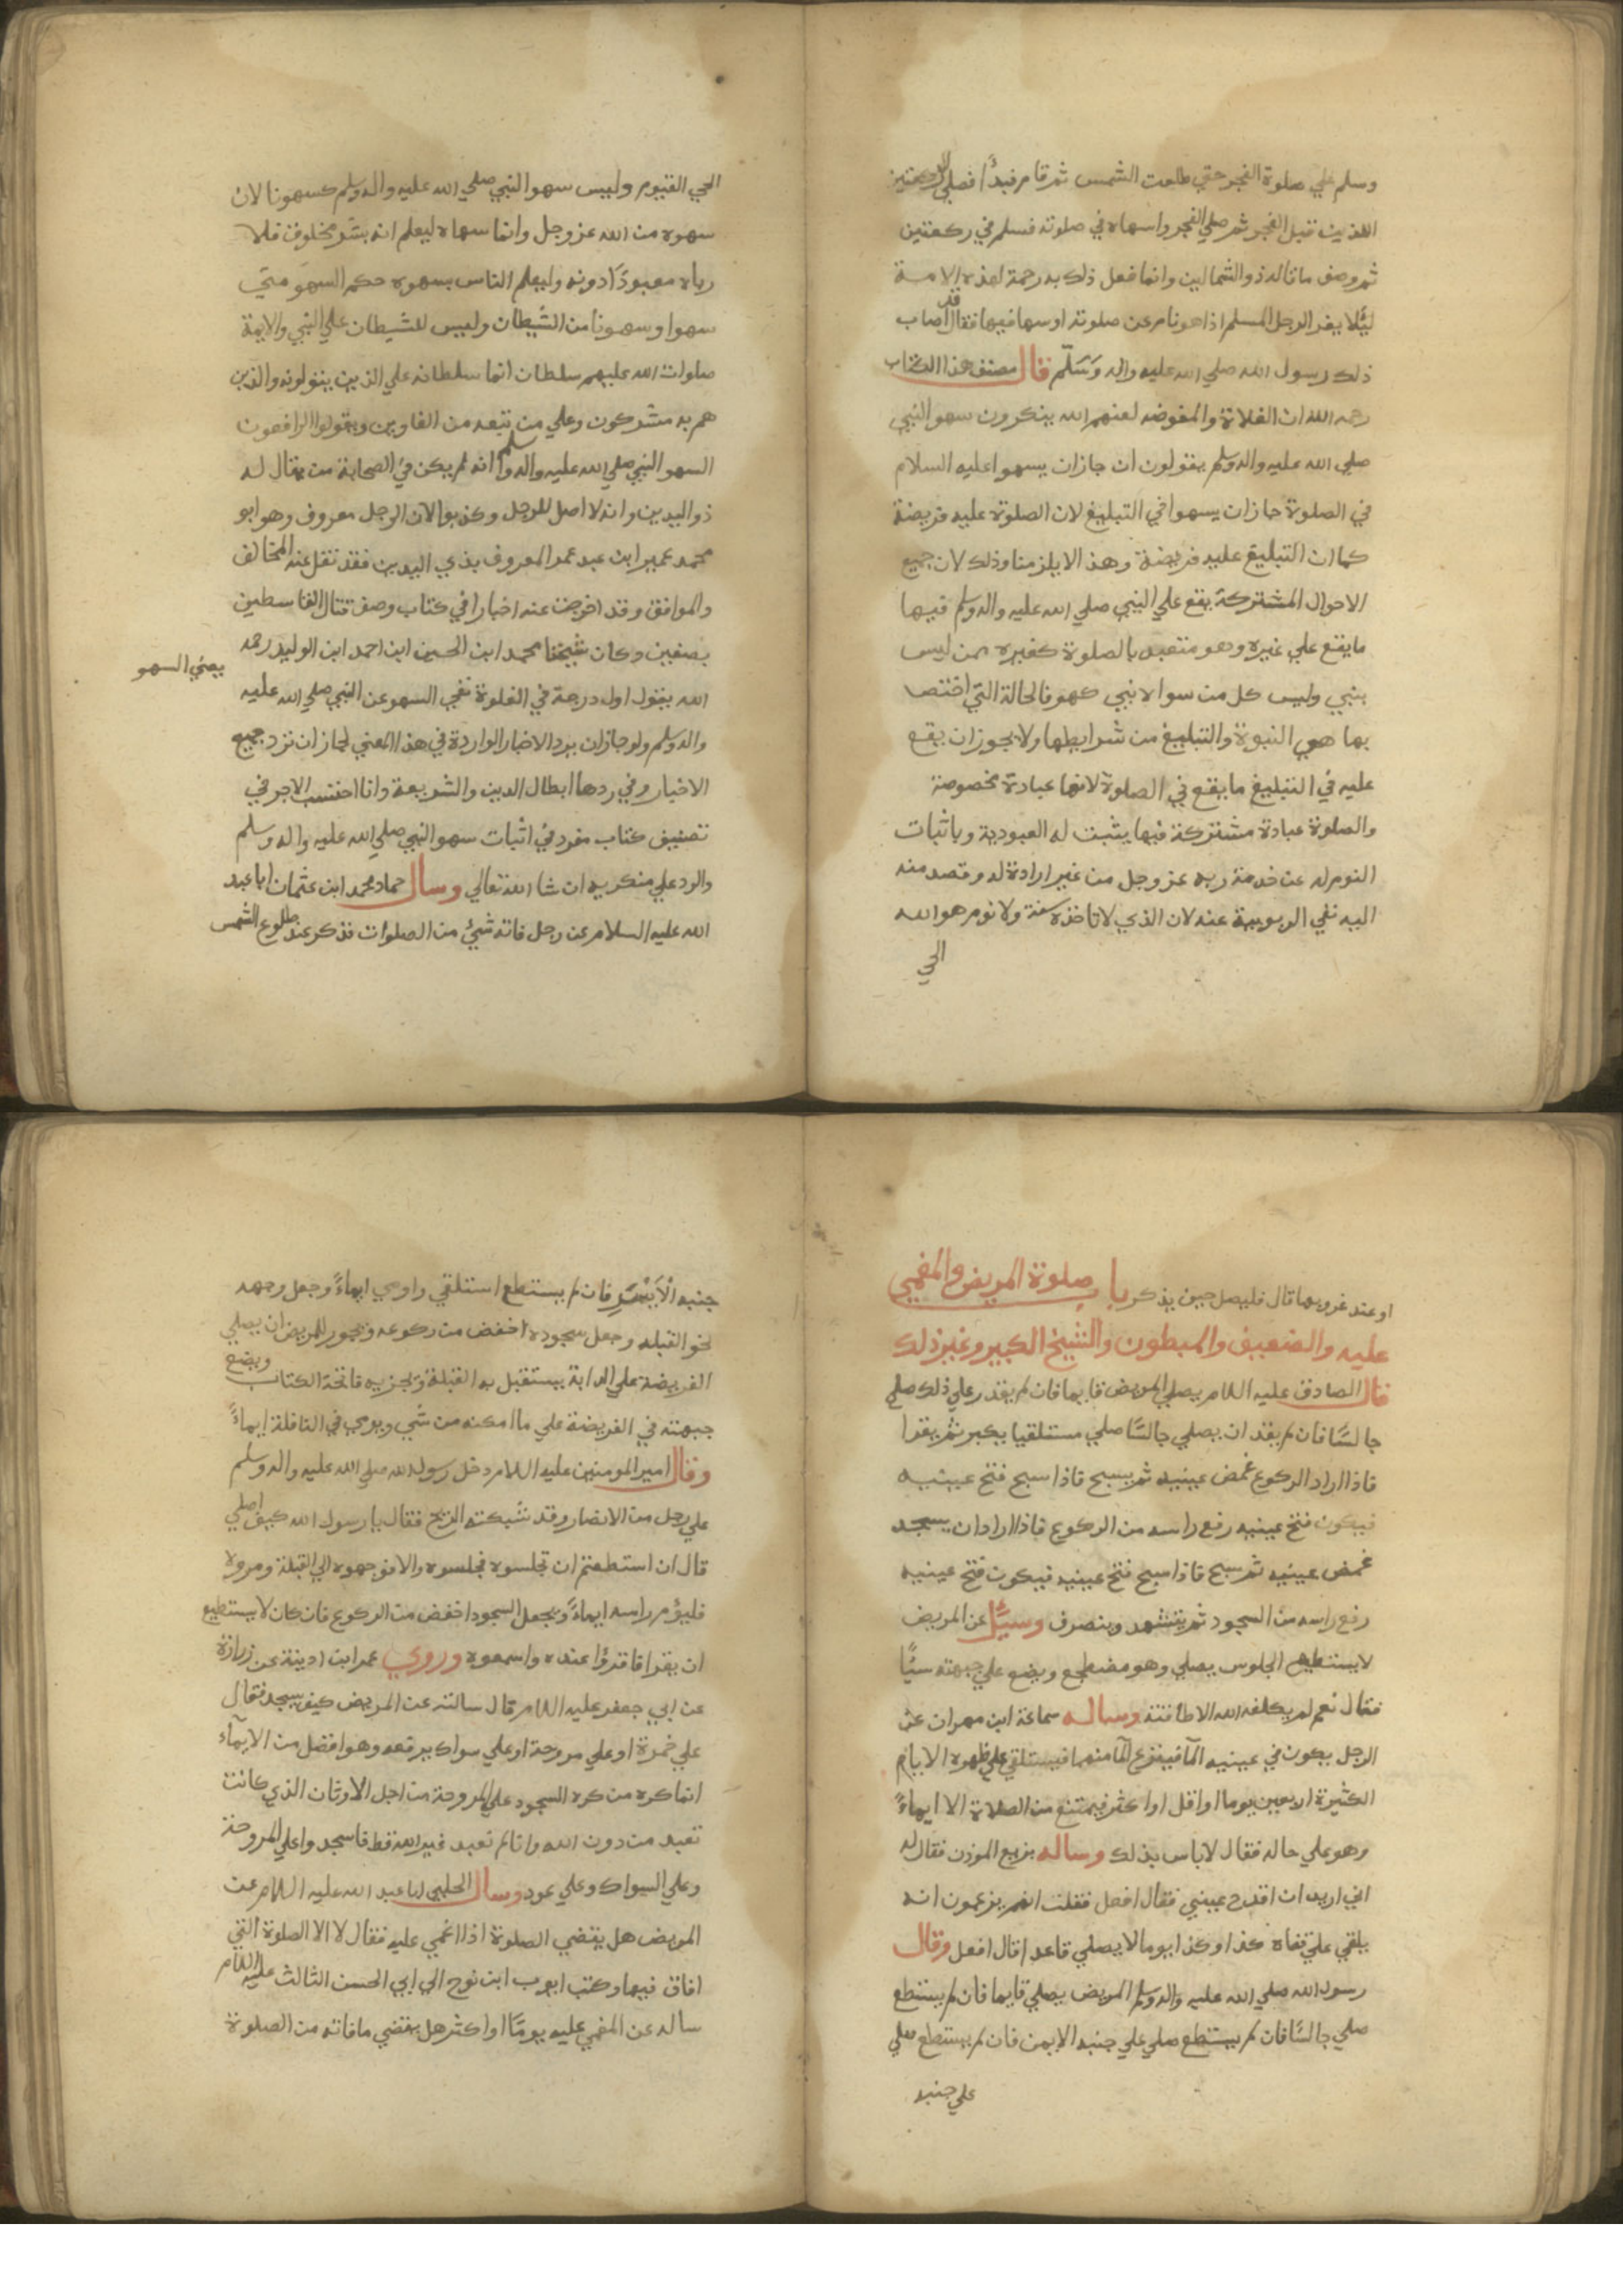 وسلم علي صلوة الفجر حتي طلعت الشمس ثم قام فبدأ فصلي الركعتين
اللذين قبل الفجر ثم صلي الفجر واسهاه في صلوته فسلم في ركعتين
ثم وصف ما قاله ذو الشمالين وانما فعل ذلك به رحمة لهذه الامة
ليُلا يعير الرجل المسلم اذا هو نام عن صلوته او سها فيها فقال قد اصاب
ذلك رسول الله صلي الله عليه واله وَسَلّم قال مصنف هذا الكتاب
رحمه الله ان الغلاة والمفوضه لعنهم الله ينكرون سهو النبي
صلي الله عليه واله وسلم يقولون ان جاز ان يسهوا عليه السلام
في الصلوة جاز ان يسهوا في التبليغ لان الصلوة عليه فريضة
كما ان التبليغ عليه فريضة وهذا لا يلزمنا وذلك لان جميع
الاحوال المشتركة يقع علي النبي صلي الله عليه واله وسلم فيها
ما يقع علي غيره وهو متعبد بالصلوة كغيره ممن ليس
بنبي وليس كل من سواه نبي كهو فالحالة التي اختص
بها هي النبوة والتبليغ من شرايطها ولا يجوز ان يقع
عليه في التبليغ ما يقع في الصلوة لانها عبادة مخصوصة
والصلوة عبادة مشتركة فبها يثبت له العبودية وباثبات
النوم له عن خدمة ربه عز وجل من غير ارادة له وقصد منه
اليه نفي الربوبية عنه لان الذي لا تاخذه سنة ولا نوم هو الله
الحي
الحي القيوم وليس سهو النبي صلي الله عليه واله وسلم كسهونا لان
سهوه من الله عز وجل وانما سهاه ليعلم انه بشر مخلوق فلا
رباه معبودًا دونه وليعلم الناس بسهوه حكم السهو متي
سهوا وسهونا من الشيطان وليس للشيطان علي النبي والايمة
صلوات الله عليهم سلطان انما سلطانه علي الذين يتولونه والذين
هم به مشركون وعلي من تبعه من الغاوين ويقولوا الرافعون
السهو النبي صلي الله عليه واله وسلم انه لم يكن في الصحابة من يقال له
ذو اليدين وانه لا اصل للرجل وكذبوا لان الرجل معروف وهو ابو
محمد عمير ابن عبد عمر المعروف بذي اليدين فقد نقل عنه المخالف
والموافق وقد اخرجت عنه اخبارا في كتاب وصف قتال القاسطين
بصفين وكان شيخنا محمد ابن الحسين ابن احمد ابن الوليد رحمه
يعني السهو
الله يقول اول درجة في الغلوة نفي السهو عن النبي صلي الله عليه
واله وسلم ولو جاز ان يرد الاخبار الواردة في هذا المعني لجاز ان نرد جميع
الاخبار وفي ردها ابطال الدين والشريعة وانا احتسب الاجر في
تصنيف كتاب مفرد في اثبات سهو النبي صلي الله عليه واله وسلم
والرد علي منكريه ان شا الله تعالي وسال حماد محمد ابن عثمان ابا عبد
الله عليه السلام عن رجل فاته شئ من الصلوات فذكر عند طلوع الشمس
او عند غروبها قال فليصل حين يذكر باب صلوة المريض والمغمي
عليه والضعيف والمبطون والشيخ الكبير وغير ذلك
قال الصادق عليه اللام يصلي المريض قايما فان لم يقدر علي ذلك صلي
جالسًا فان لم يقد ان يصلي جالسًا صلي مستلقيا يكبر ثم يقرا
فاذا اراد الركوع غمض عينيه ثم يسبح فاذا سبح فتح عينيه
فيكون فتح عينيه رفع راسه من الركوع فاذا اراد ان يسجد
غمض عينيه ثم سبح فاذا سبح فتح عينيه فيكون فتح عينيه
رفع راسه من السجود ثم يتشهد وينصرف وسيُل عن المريض
لا يستطيع الجلوس يصلي وهو مضطجع ويضع علي جبهته شيًا
فقال نعم لم يكلفه الله الا طاقته وساله سماعة ابن مهران عن
الرجل يكون في عينيه المآ فينزع المآ منهما فيستلقي علي ظهره الايام
الكثيرة اربعين يوما او اقل او اكثر فيمتنع من الصلاة الا ايماءً
وهو علي حاله فقال لا باس بذلك وساله بزيع الموذن فقال له
اني اريد ان اقدح عيني فقال افعل فقلت انهم يزعمون انه
يلقي علي قفاه كذا وكذا يوما لا يصلي قاعدا قال افعل وقال
رسول الله صلي الله عليه واله وسلم المريض يصلي قايما فان لم يستطع
صلي جالسًا فان لم يستطع صلي علي جنبه الايمن فان لم يستطع صلي
علي جنبه
جنبه الْاَيْسَرِ فان لم يستطع استلقي واومي ايماءً وجعل وجهه
نحو القبله وجعل سجوده اخفض من ركوعه ويجوز للمريض ان يصلي
الفريضة علي الدابة يستقبل به القبلة وتجزيه فاتحة الكتاب ويضع
جبهته في الفريضة علي ما امكنه من شي ويومي في النافلة ايماءً
وقال امير المومنين عليه اللام دخل رسول الله صلي الله عليه واله وسلم
علي رجل من الانصار وقد شبكته الريح فقال يا رسول الله كيف اصلي
قال ان استطعتم ان تجلسوه فجلسوه والا فوجهوه الي القبلة ومروه
فليؤمِ براسه ايماءً ويجعل السجود اخفض من الركوع فان كان لا يستطيع
ان يقرا فاقرؤا عنده واسمعوه وروي عمر ابن اذينة عن زرارة
عن ابي جعفر عليه اللام قال سالته عن المريض كيف يسجد فقال
علي خمرة او علي مروحة او علي سواك يرفعه وهو افضل من الايمآء
انما كره من كره السجود علي المروحة من اجل الاوثان الذي كانت
تعبد من دون الله وانا لم نعبد غير الله قط فاسجدوا علي المروحة
وعلي السواك وعلي عود وسال الحلبي ابا عبد الله عليه اللام عن
المريض هل يقضي الصلوة اذا اغمي عليه فقال لا الا الصلوة التي
افاق فيها وكتب ايوب ابن نوح الي ابي الحسن الثالث عليه اللام
ساله عن المغمي عليه يومًا او اكثر هل يقضي ما فاته من الصلوة